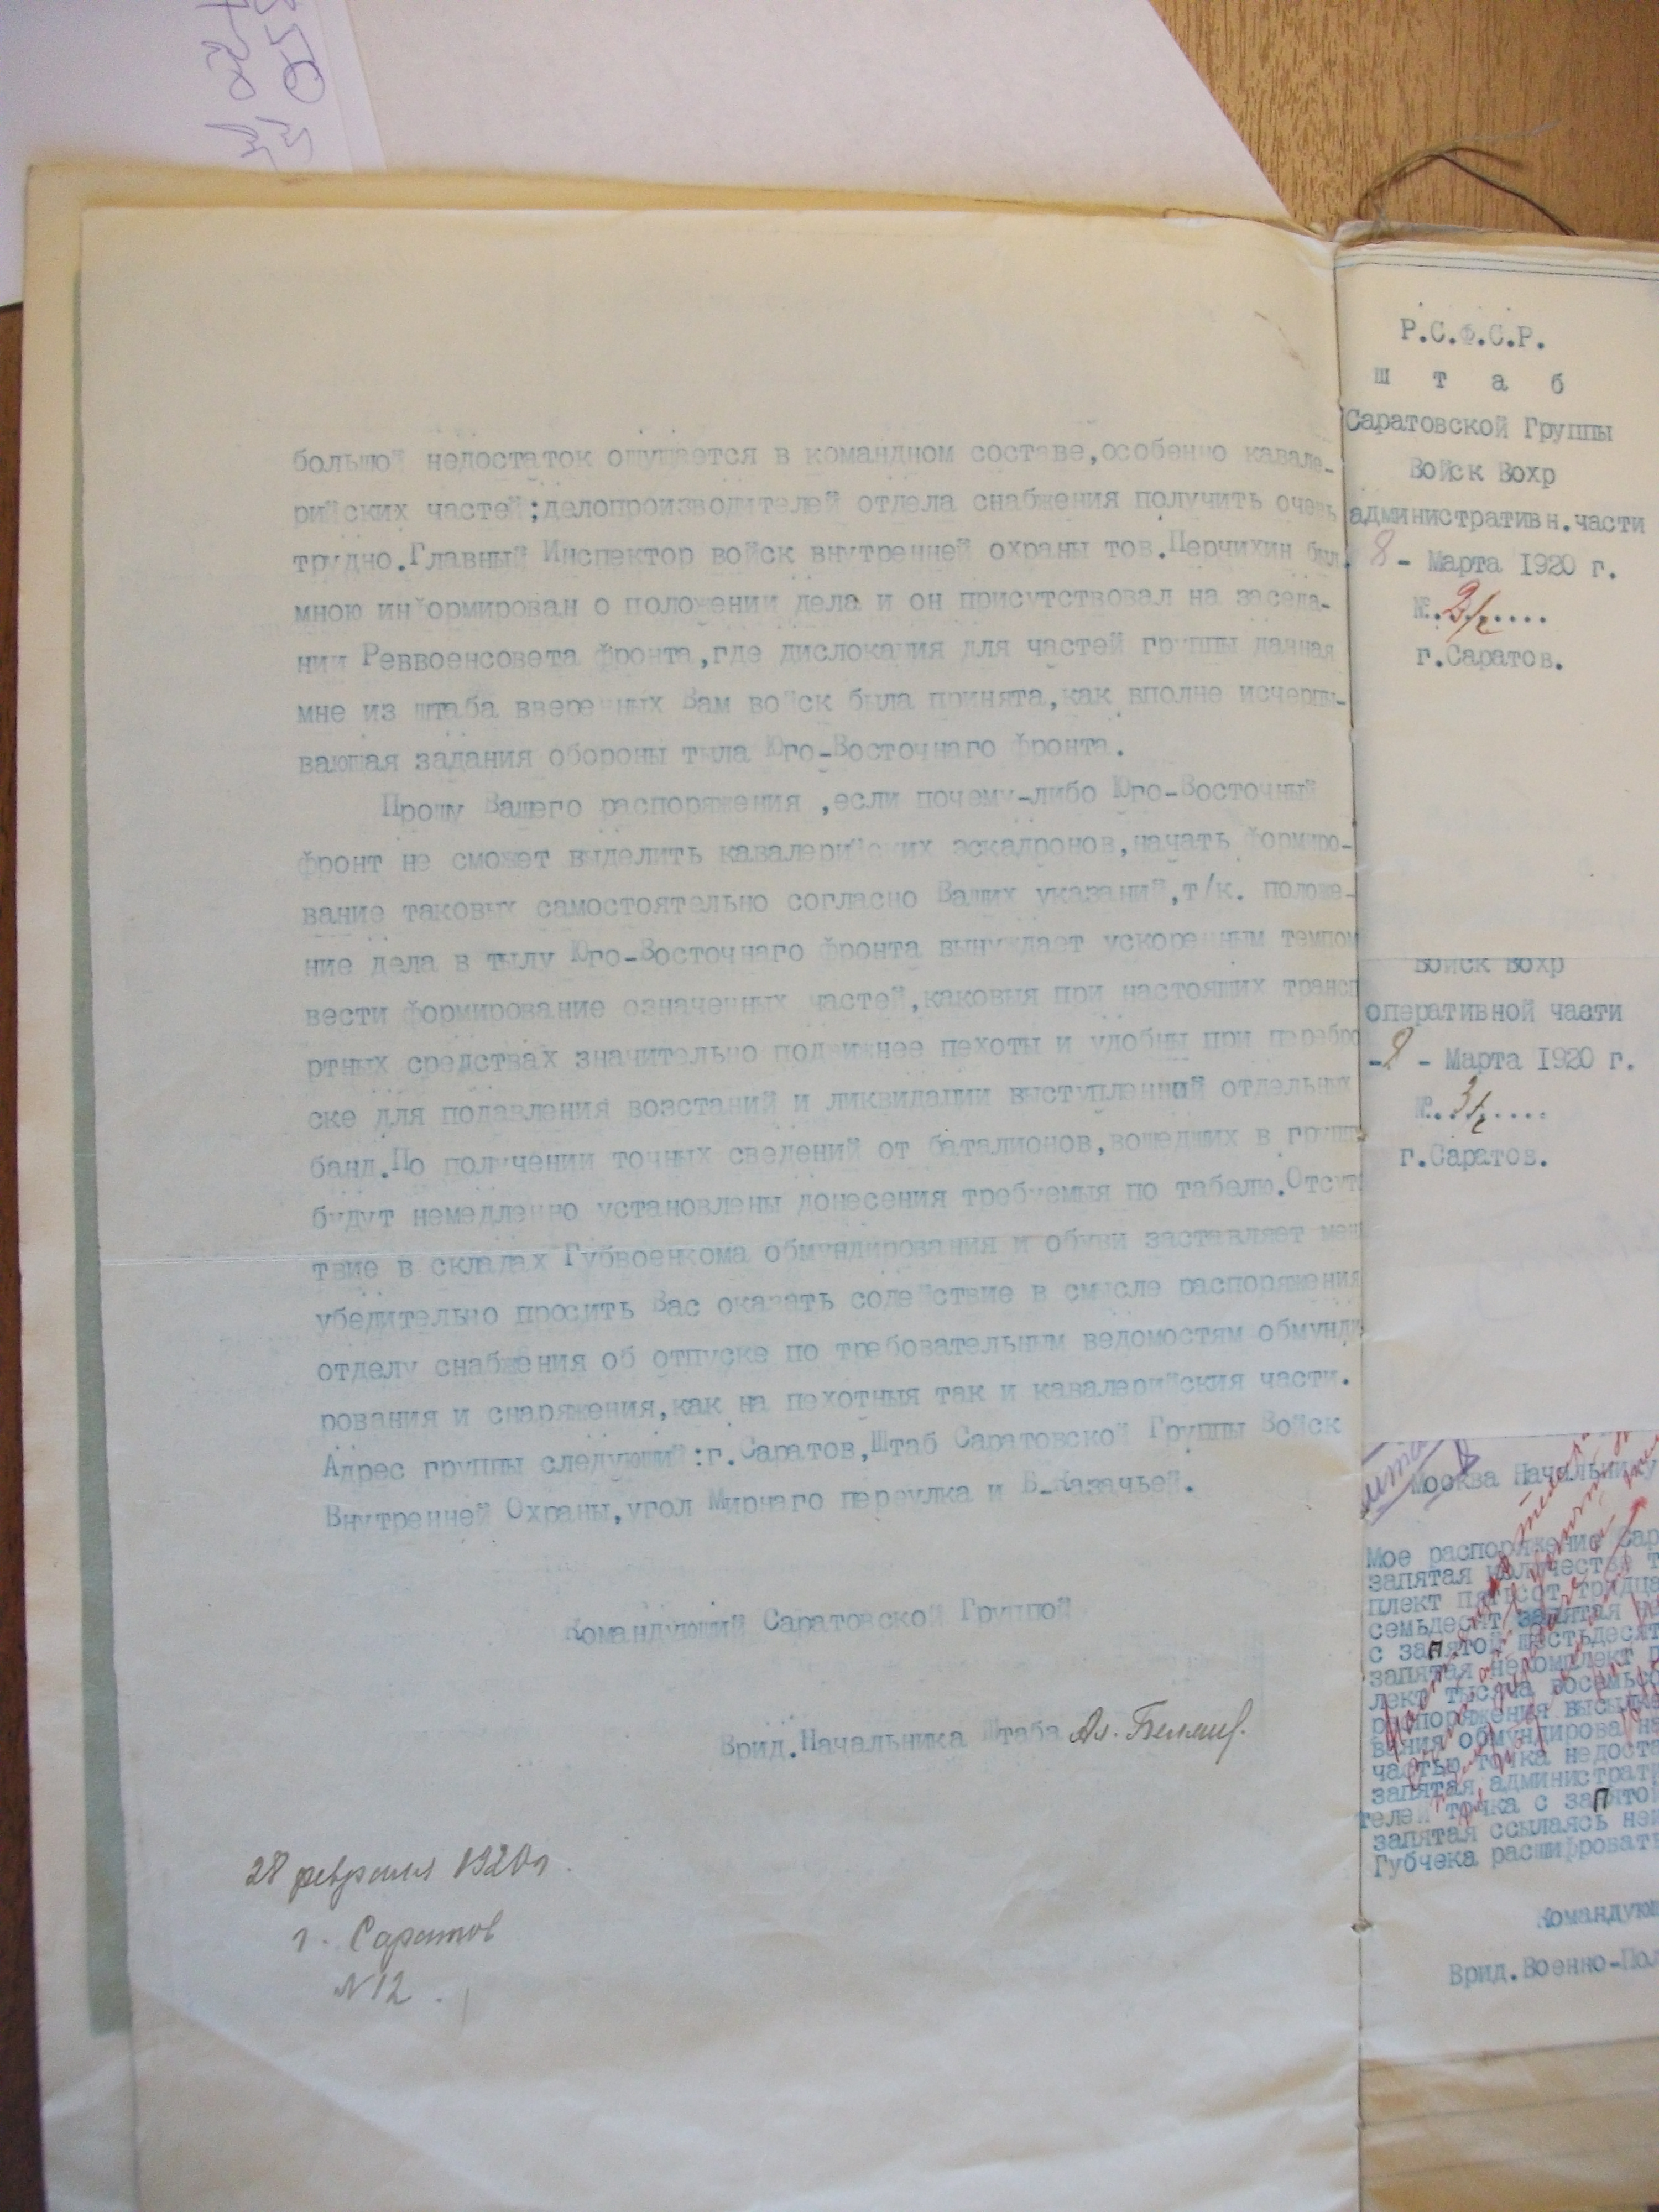 большой недостаток ощущается в командном составе,особенно кавале-
рийских частей;делопроизводителей отдела снабжения получить очень
трудно.Главный Инспектор войск внутренней охраны тов.Перчихин был
мною информирован о положении дела и он присутствовал на заседа-
нии Реввоенсовета фронта,где дислокация для частей группы данная
мне из штаба вверенных Вам войск была принята,как вполне исчерпы-
вающая задания обороны тыла Юго-Восточнаго фронта.
Прошу Вашего распоряжения ,если почему-либо Юго-Восточный
фронт не сможет выделить кавалерийских эскадронов,начать формиро-
вание таковых самостоятельно согласно Ваших указаний,т/к. положе-
ние дела в тылу Юго-Восточнаго фронта вынуждает ускоренным темпом
вести формирование означенных частей,каковыя при настоящих трансп
ртных средствах значительно подвижнее пехоты и удобны при перебро
ске для подавления возстаний и ликвидации выступлений отдельных
банд.По получении точных сведений от баталионов,вошедших в групп
будут немедленно установлены донесения требуемыя по табелю.Отсут
твие в складах Губвоенкома обмундирования и обуви заставляет мен
убедительно просить Вас оказать содействие в смысле распоряжения
отделу снабжения об отпуске по требовательным ведомостям обмунди
рования и снаряжения,как на пехотныя так и кавалерийския части.
Адрес группы следующий:г.Саратов,Штаб Саратовской Группы Войск
Внутренней Охраны,угол Мирнаго переулка и Б-Казачьей.
Командующий Саратовской Группой
Врид.Начальника Штаба
28 февраля 1920 г.
г. Саратов
N 12.
Р.С.Ф.С.Р.
Ш т а б
Саратовской Группы
Войск Вохр
административн.части
8 - Марта 1920 г.
№.2/....
г.Саратов.
Войск Вохр
оперативной части
-8 - Марта 1920 г.
№.3/....
г.Саратов.
Москва Начальнику
Мое распоряжение Сар
запятая количества т
плект пятьсот тридца
семьдесят запятая
с запятой шестьдесят
запятая некомплект
лект тысяча восемьсо
распоряжения высылке
вания обмундирова
частью точка недоста
запятая администрати
телей точка с запятой
запятая ссылаясь неи
Губчека расшифровать
Командую
Врид.Военно-Пол